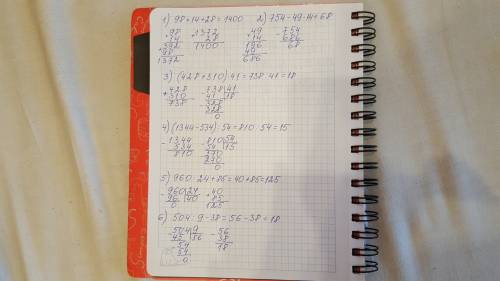 1) 98·14+28=1400 2) 754-49·14=68
98 +1372 49 -754
14 28 14 686
+392 1400 196 68
98 49
1372 686
3) (428+310):41=738:41=18
+428 -738|41
310 41 |18
738 -328
328
0
4) (1344-534):54=810:54=15
-1344 -810|54
534 54 |15
810 -270
270
0
5) 960:24+85=40+85=125
-960|24 +40
96 |40 85
0 125
6) 504:9-38=56-38=18
-504|9 -56
45 |56 38
-54 18
54
0